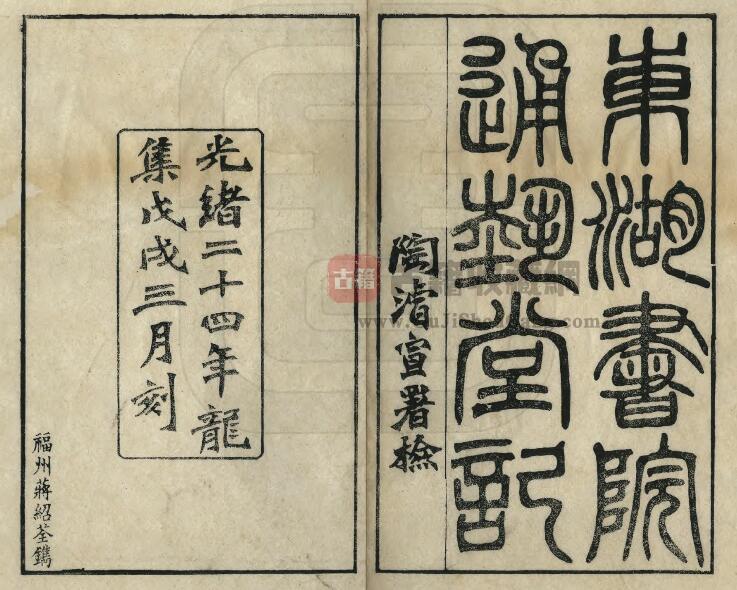 東湖書院
通藝堂記
陶濬宣署檢
光緒二十四年龍
集戊戌三月刻
福州蔣紹荃鐫
古籍